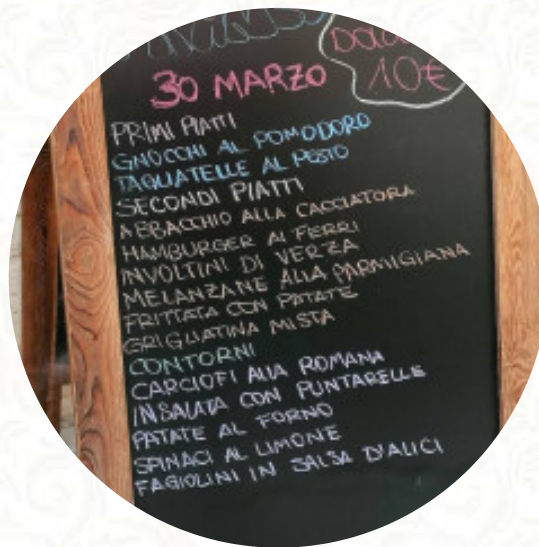 30 MARZO
10€
PRIMI PIATTI
GNOCCHI AL POMODORO
TAGLIATELLE AL PESTO
SECONDI PIATTI
ABBACCHIO ALLA CACCIATORA
HAMBURGER AI FERRI
INVOLTINI DI VERZA
MELANZANE ALLA PARMIGIANA
FRITTATA CON PATATE
GRIGLIATINA MISTA
CONTORNI
CARCIOFI ALLA ROMANA
INSALATA CON PUNTARELLE
PATATE AL FORNO
SPINACI AL LIMONE
FAGIOLINI IN SALSA D'ALICI